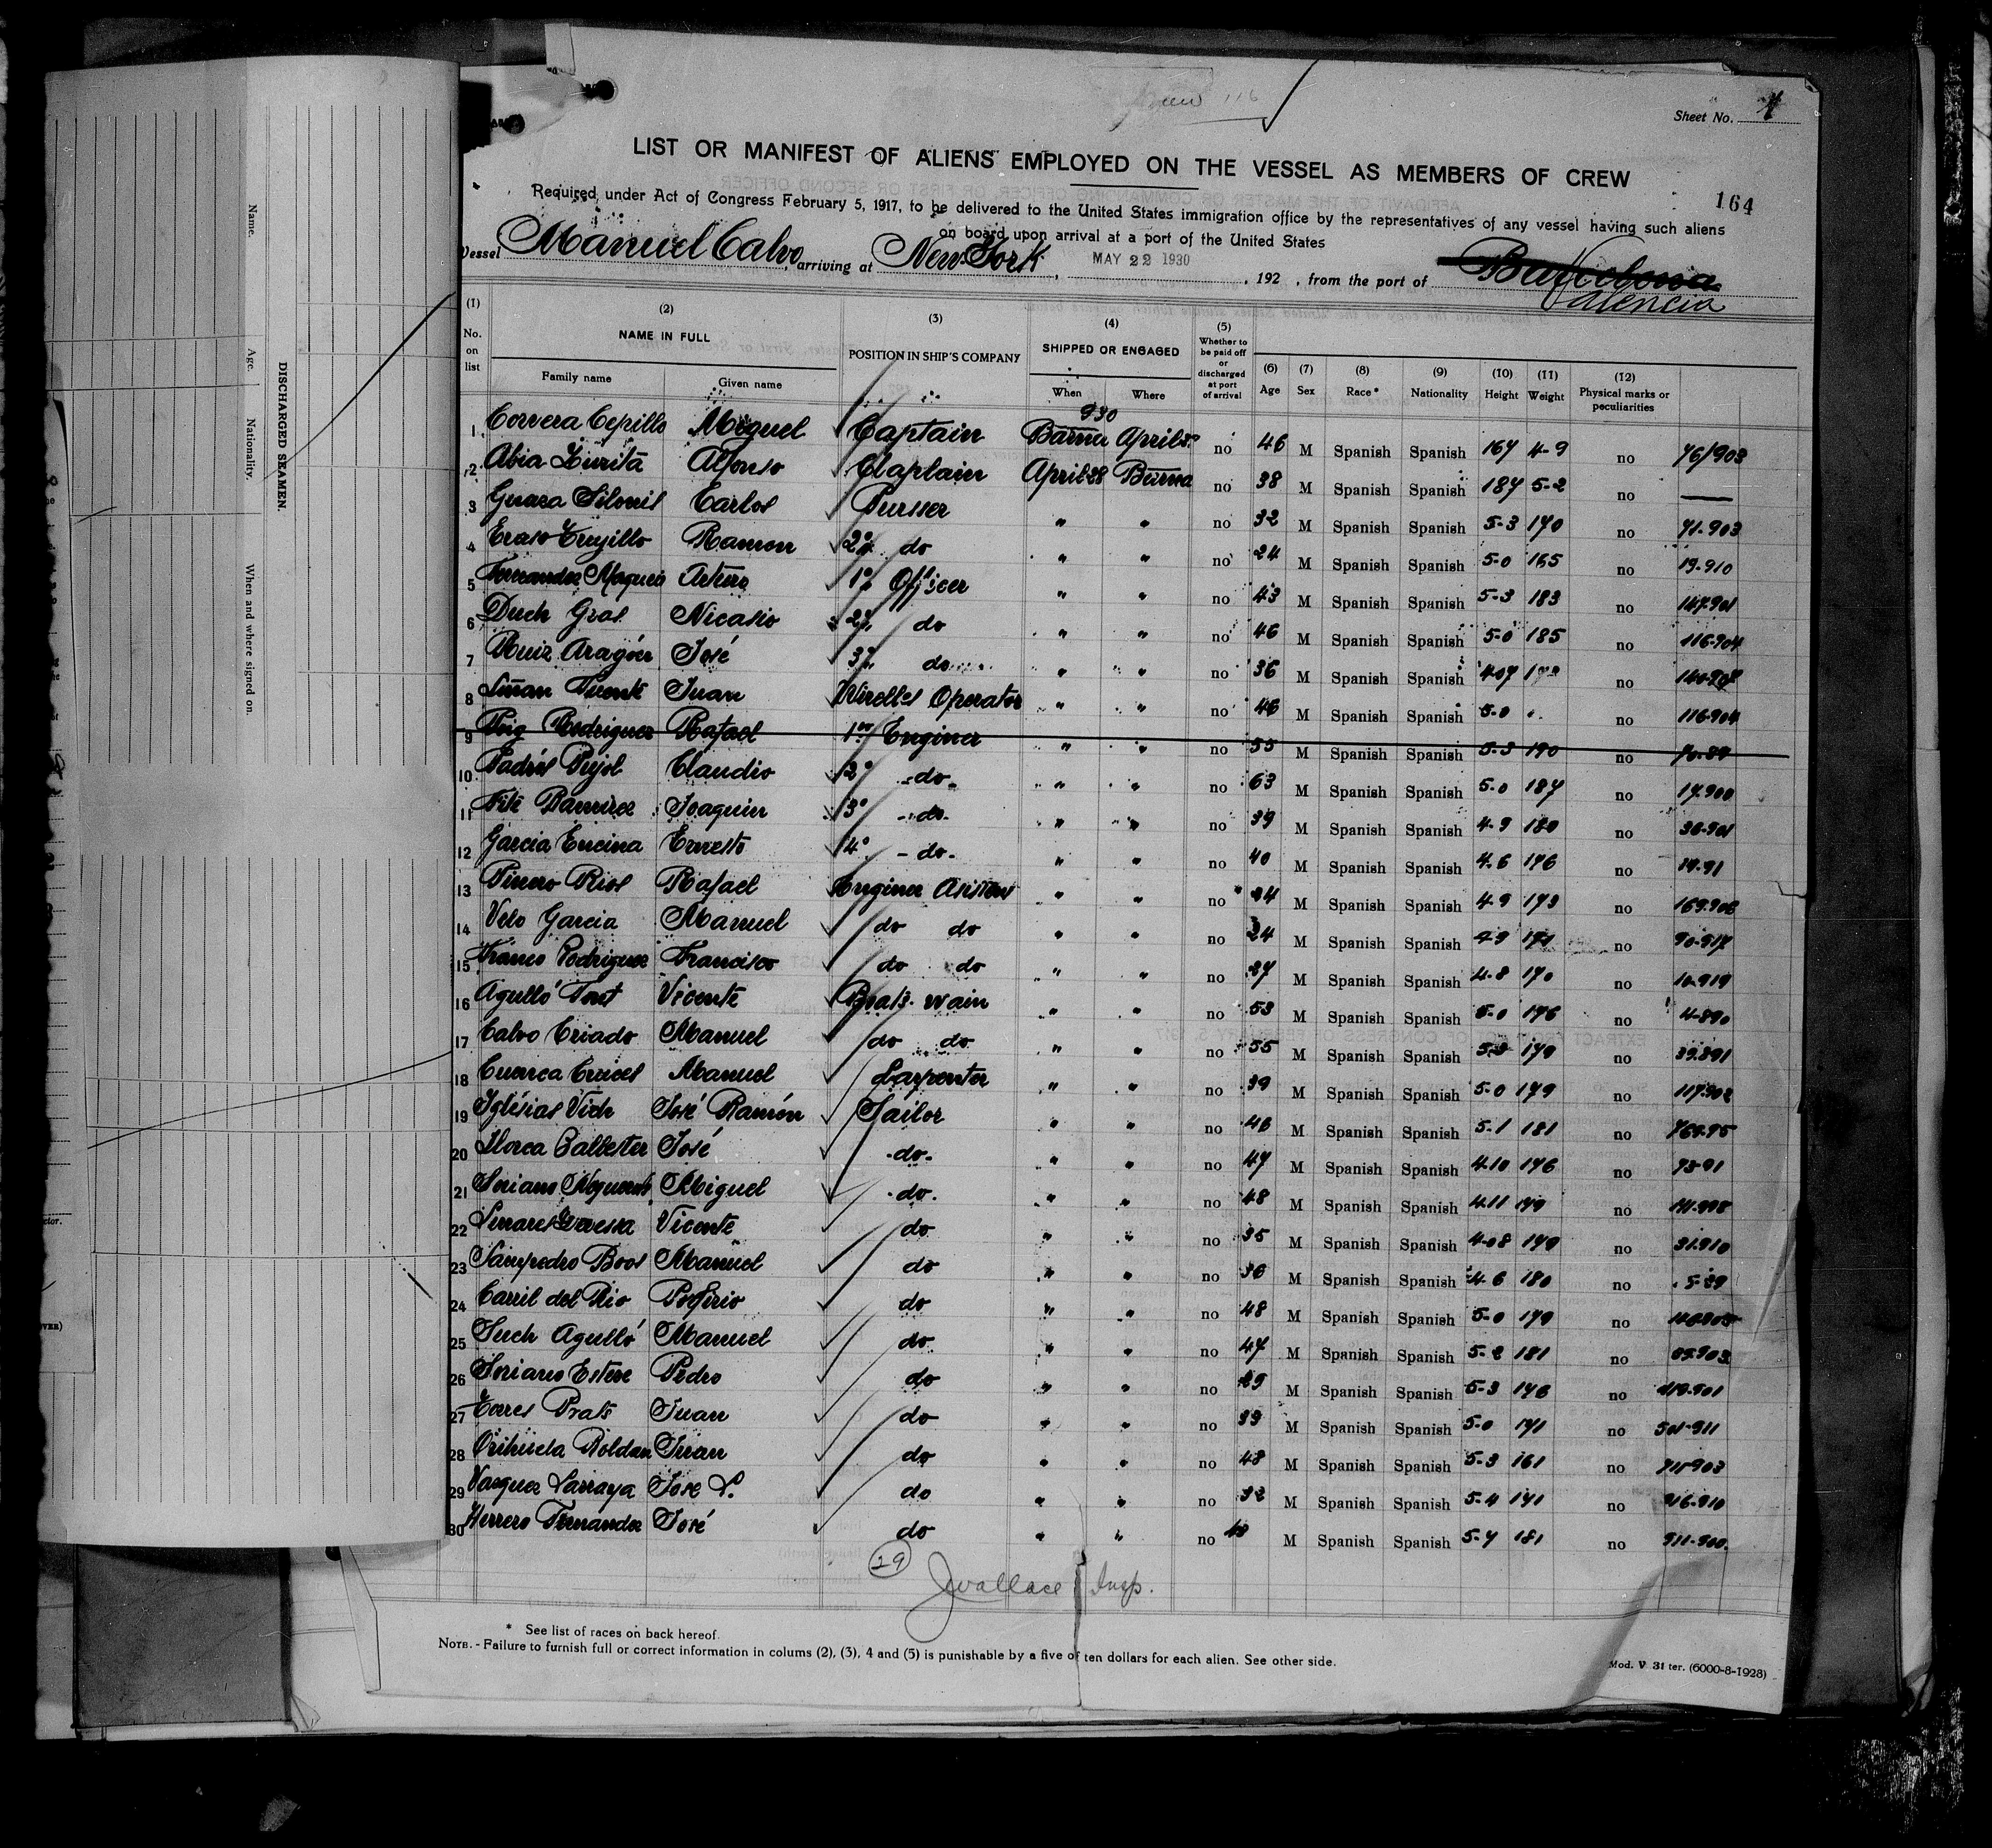 Sheet No. 1
LIST OR MANIFEST OF ALIENS EMPLOYED ON THE VESSEL AS MEMBERS OF CREW
164
Required under Act of Congress February 5, 1917, to be delivered to the United States immigration office by the representatives of any vessel having such aliens
on board upon arrival at a port of the United States
Vessel Manuel Calvo, arriving at New York, MAY 22 1930, 192 , from the port of Barcelona
Valencia
(1) No. on list (2) NAME IN FULL Family name Given name (3) POSITION IN SHIP'S COMPANY (4) SHIPPED OR ENGAGED When Where (5) Whether to be paid off or discharged at port of arrival (6) Age (7) Sex (8) Race* (9) Nationality (10) Height (11) Weight (12) Physical marks or peculiarities
930
1 Corvera Cepillo Miguel Captain Barna April no 46 M Spanish Spanish 167 4-9 no 76/903
2 Abia Zurita Alfonso Chaplain April 28 Barna no 38 M Spanish Spanish 187 5-2 no —
3 Carlos Pursser " " no 32 M Spanish Spanish 5-3 170 no 71-903
4 Eraso Trujillo Ramon 2º do " " no 24 M Spanish Spanish 5-0 165 no 19-910
5 Fernandez Arturo 1º Officer " " no 43 M Spanish Spanish 5-3 183 no 147-901
6 Duch Gras Nicasio 2º do " " no 46 M Spanish Spanish 5-0 185 no 116-904
7 Ruiz Aragón José 3º do " " no 36 M Spanish Spanish 4-07 no
8 Juan Wirelles Operator " " no 46 M Spanish Spanish 5-0 no 116-904
9 Puig Rodriguez Rafael 1er Enginer " " no 55 M Spanish Spanish 5-3 190 no 70-89
10 Padrós Pujol Claudio 2º -do- " " no 63 M Spanish Spanish 5-0 187 no 17-900
11 Joaquin 3º -do- " " no 39 M Spanish Spanish 4-9 180 no 36-901
12 Garcia Encina Ernesto 4º -do- " " no 40 M Spanish Spanish 4-6 176 no 34-91
13 Pinero Rios Rafael Enginer " " no 24 M Spanish Spanish 4-9 173 no 169-906
14 Velo Garcia Manuel do do " " no 24 M Spanish Spanish 4-9 no 90-917
15 Franco Rodriguez Francisco do do " " no 27 M Spanish Spanish 4-8 170 no 10-919
16 Agulló Vicente Boats. wain " " no 53 M Spanish Spanish 5-0 176 no 4-890
17 Calvo Criado Manuel do do " " no 55 M Spanish Spanish 179 no 39-891
18 Cuenca Manuel Carpenter " " no 39 M Spanish Spanish 5-0 179 no 117-902
19 Iglésias Vich José Ramón Sailor " " no 46 M Spanish Spanish 5-1 181 no
20 Llorca Ballester José -do- " " no 47 M Spanish Spanish 4-10 176 no 73-91
21 Soriano Miguel -do- " " no 48 M Spanish Spanish 4-11 no
22 Linares Vicente do " " no 35 M Spanish Spanish 4-08 170 no 31-910
23 Sampedro Boos Manuel do " " no 36 M Spanish Spanish 4-6 180 no 5-89
24 Carril del Rio Porfirio do " " no 48 M Spanish Spanish 5-0 179 no
25 Such Agulló Manuel do " " no 47 M Spanish Spanish 5-2 181 no 09-903
26 Soriano Esteve Pedro do " " no 29 M Spanish Spanish 5-3 176 no 219-901
27 Torres Prats Juan do " " no 39 M Spanish Spanish 5-0 171 no 501-911
28 Orihuela Roldan Juan do " " no 48 M Spanish Spanish 5-3 161 no 715-903
29 Vasquez Larraya Jose L. do " " no 32 M Spanish Spanish 5-4 171 no 916-910
30 Herrero Fernandez José do " " no M Spanish Spanish 5-7 181 no 911-900
29
JWallace Insp.
* See list of races on back hereof.
NOTE. - Failure to furnish full or correct information in colums (2), (3), 4 and (5) is punishable by a five of ten dollars for each alien. See other side.
Mod. V 31 ter. (6000-8-1928)
DISCHARGED SEAMEN.
Name. Age. Nationality. When and where signed on.